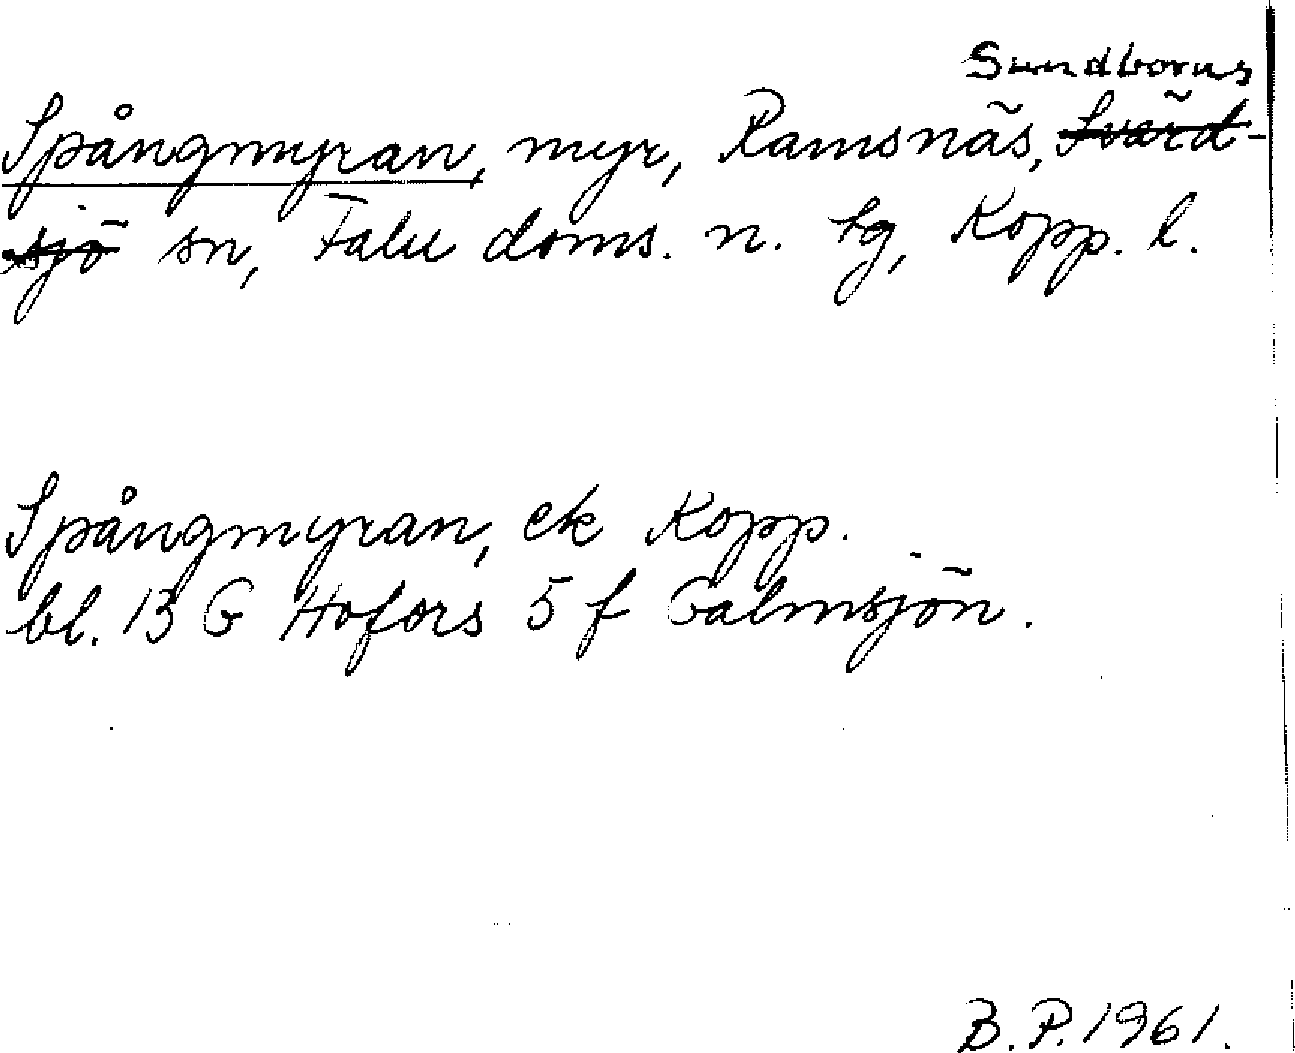 Sundborns
Spångmyran, myr, Ramsnäs, Svärd-
sjö sn, Falu doms. n. tg, Kopp. l.
Spångmyran, ek Kopp.
bl. 13 G Hofors 5 f Galmsjön.
B.P. 1961.